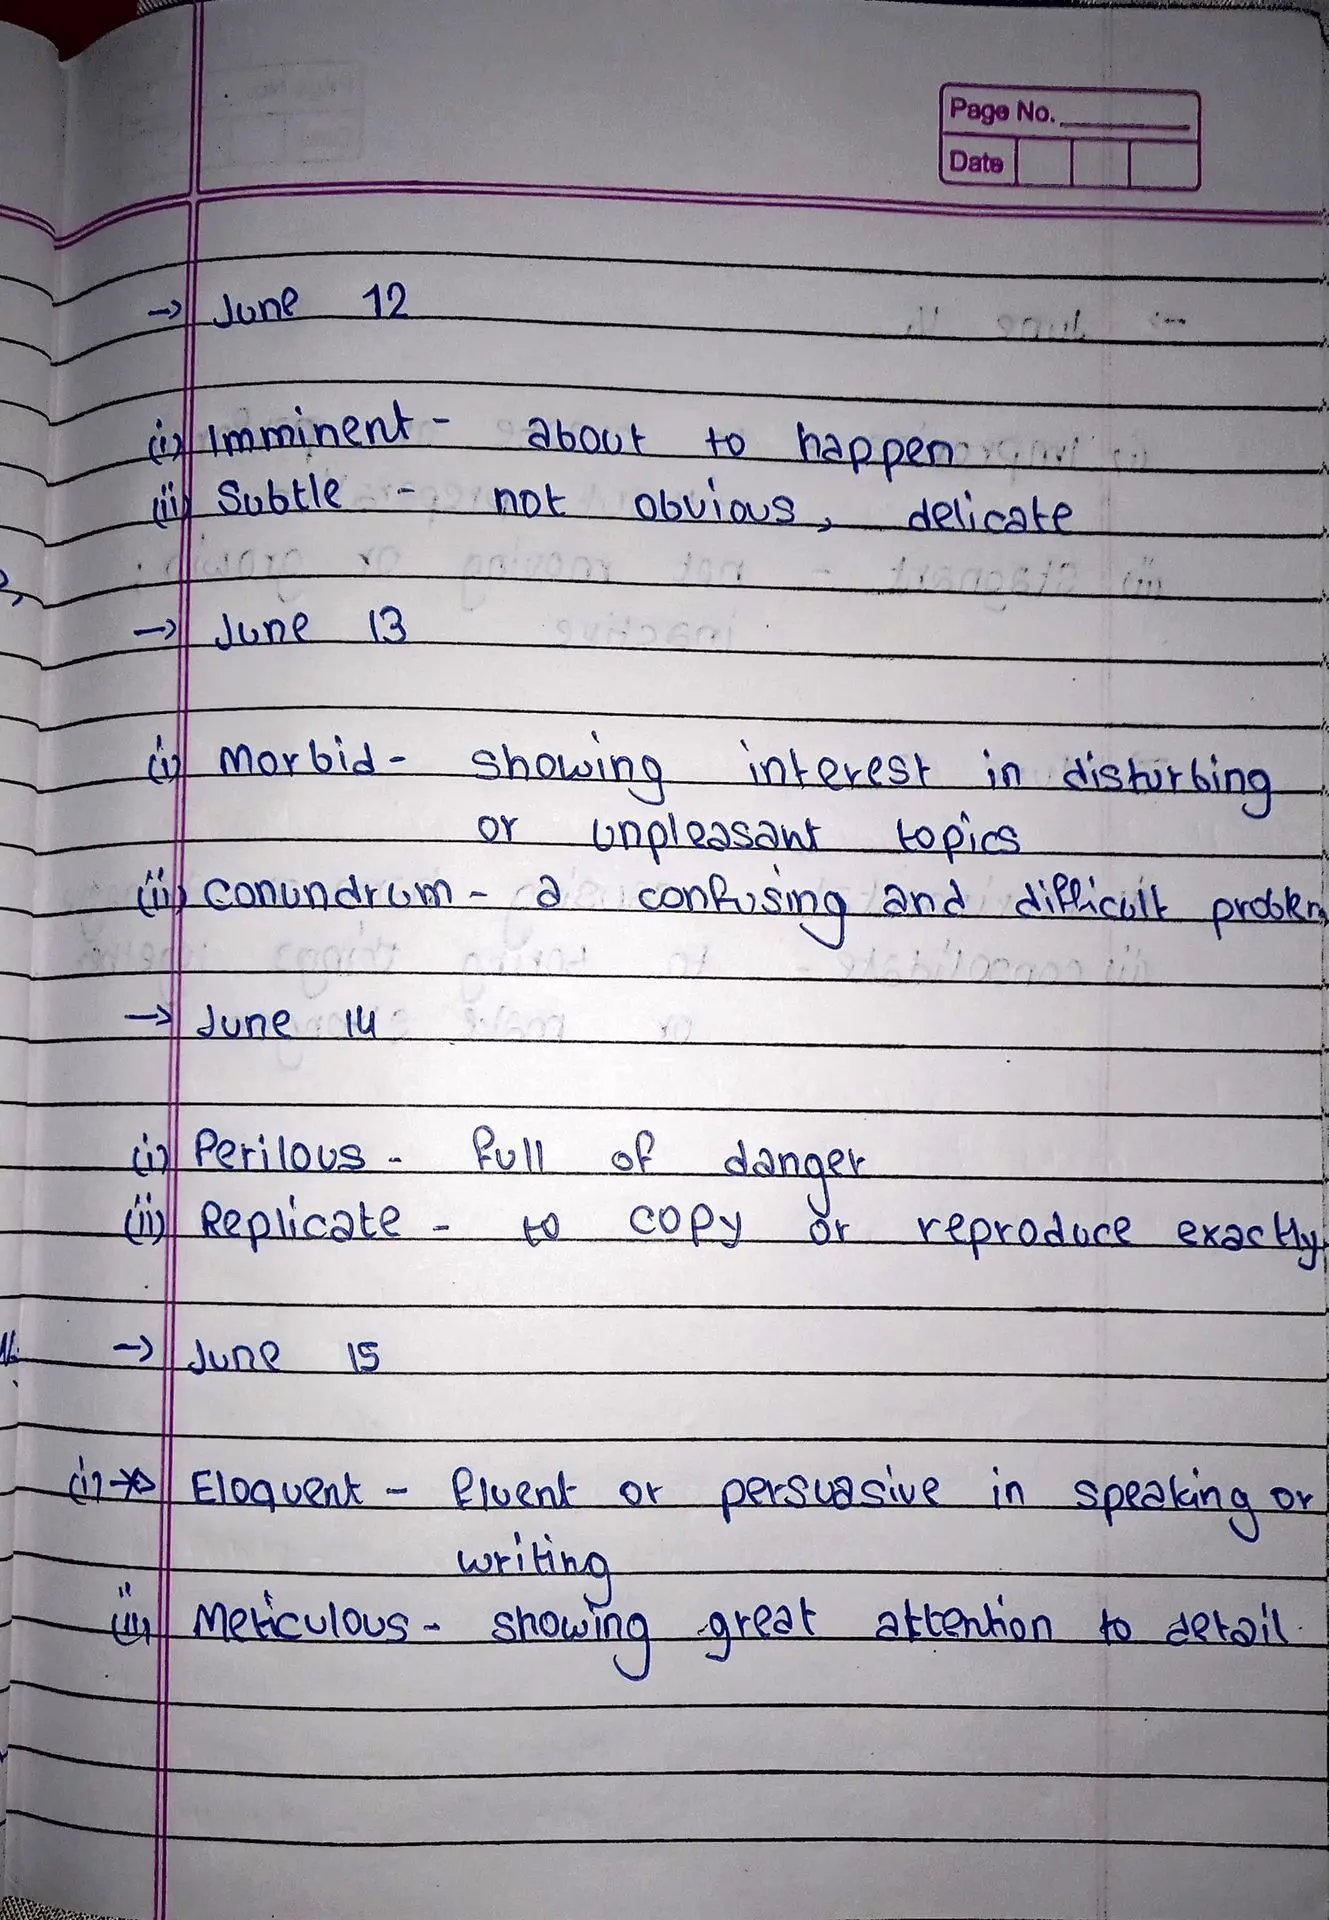 Page No.
Date
→ June 12
(i) Imminent - about to happen
(ii) Subtle - not obvious, delicate
→ June 13
(i) Morbid - showing interest in disturbing
or unpleasant topics
(ii) conundrum - a confusing and difficult problem
→ June 14
(i) Perilous - full of danger
(ii) Replicate - to copy or reproduce exactly
→ June 15
(i) Eloquent - fluent or persuasive in speaking or
writing
(ii) Meticulous - showing great attention to detail.